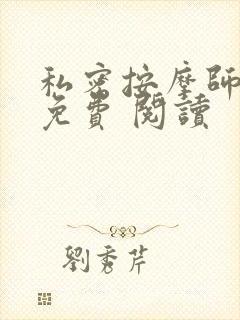 私密按摩師
免費 閱讀
劉秀芹